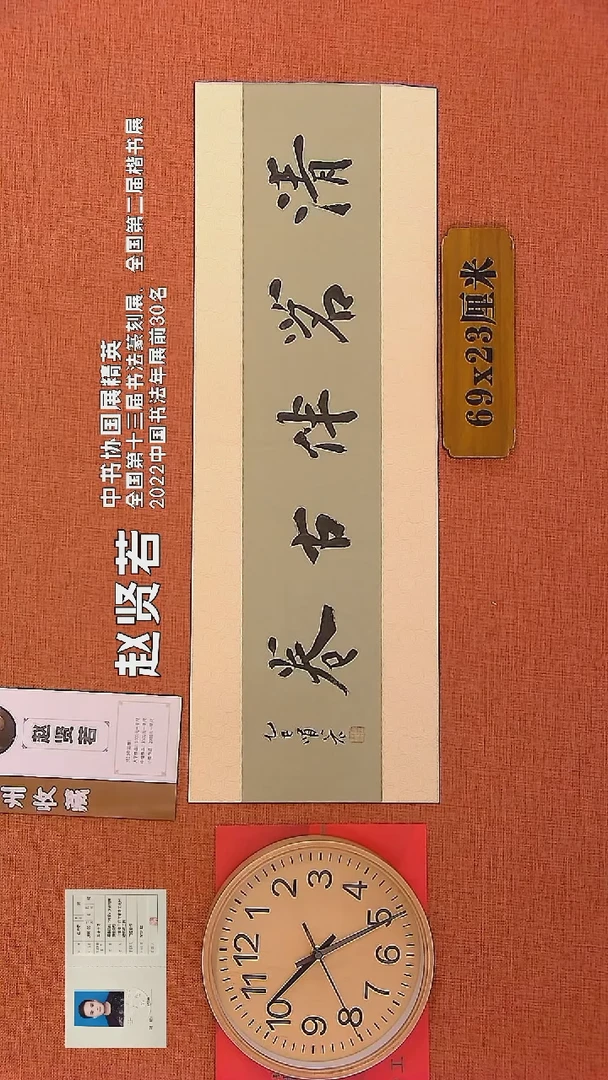 赵贤若
中书协国展精英
全国第十三届书法篆刻展、全国第二届楷书展
2022中国书法年展前30名
清茗伴古卷
乙巳贤若
69x23厘米
赵贤若
州收藏
12
1
2
3
4
5
6
7
8
9
10
11